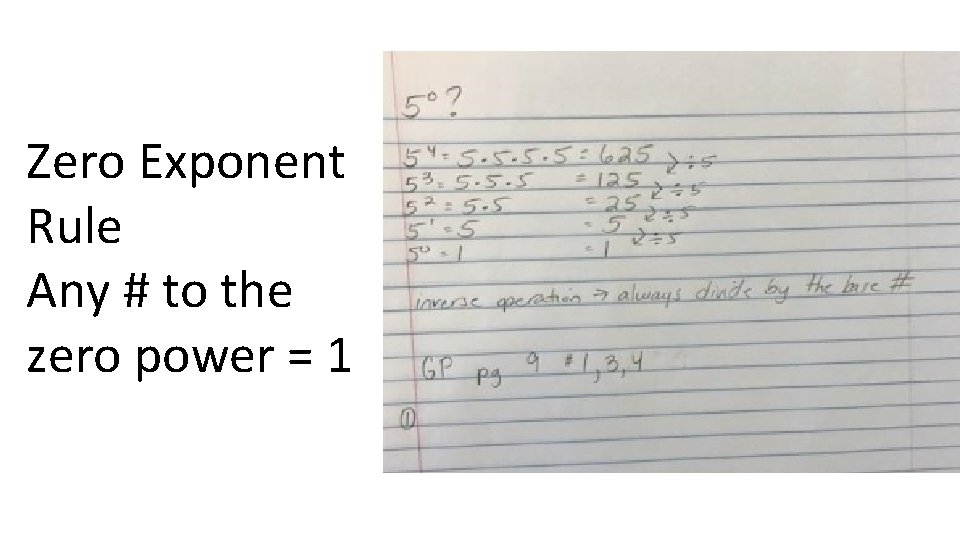 Zero Exponent
Rule
Any # to the
zero power = 1
5⁰?
5⁴ = 5·5·5·5 = 625 ⤸÷5
5³ = 5·5·5 = 125 ⤸÷5
5² = 5·5 = 25 ⤸÷5
5¹ = 5 = 5 ⤸÷5
5⁰ = 1 = 1
inverse operation → always divide by the base #
GP pg 9 #1,3,4
①